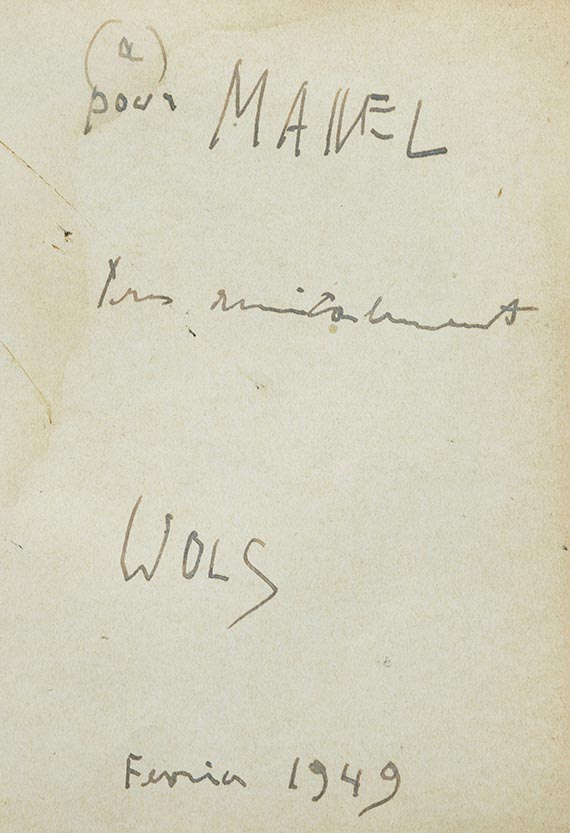 (a)
pour MANEL
Tres amicalement
WOLS
Fevrier 1949